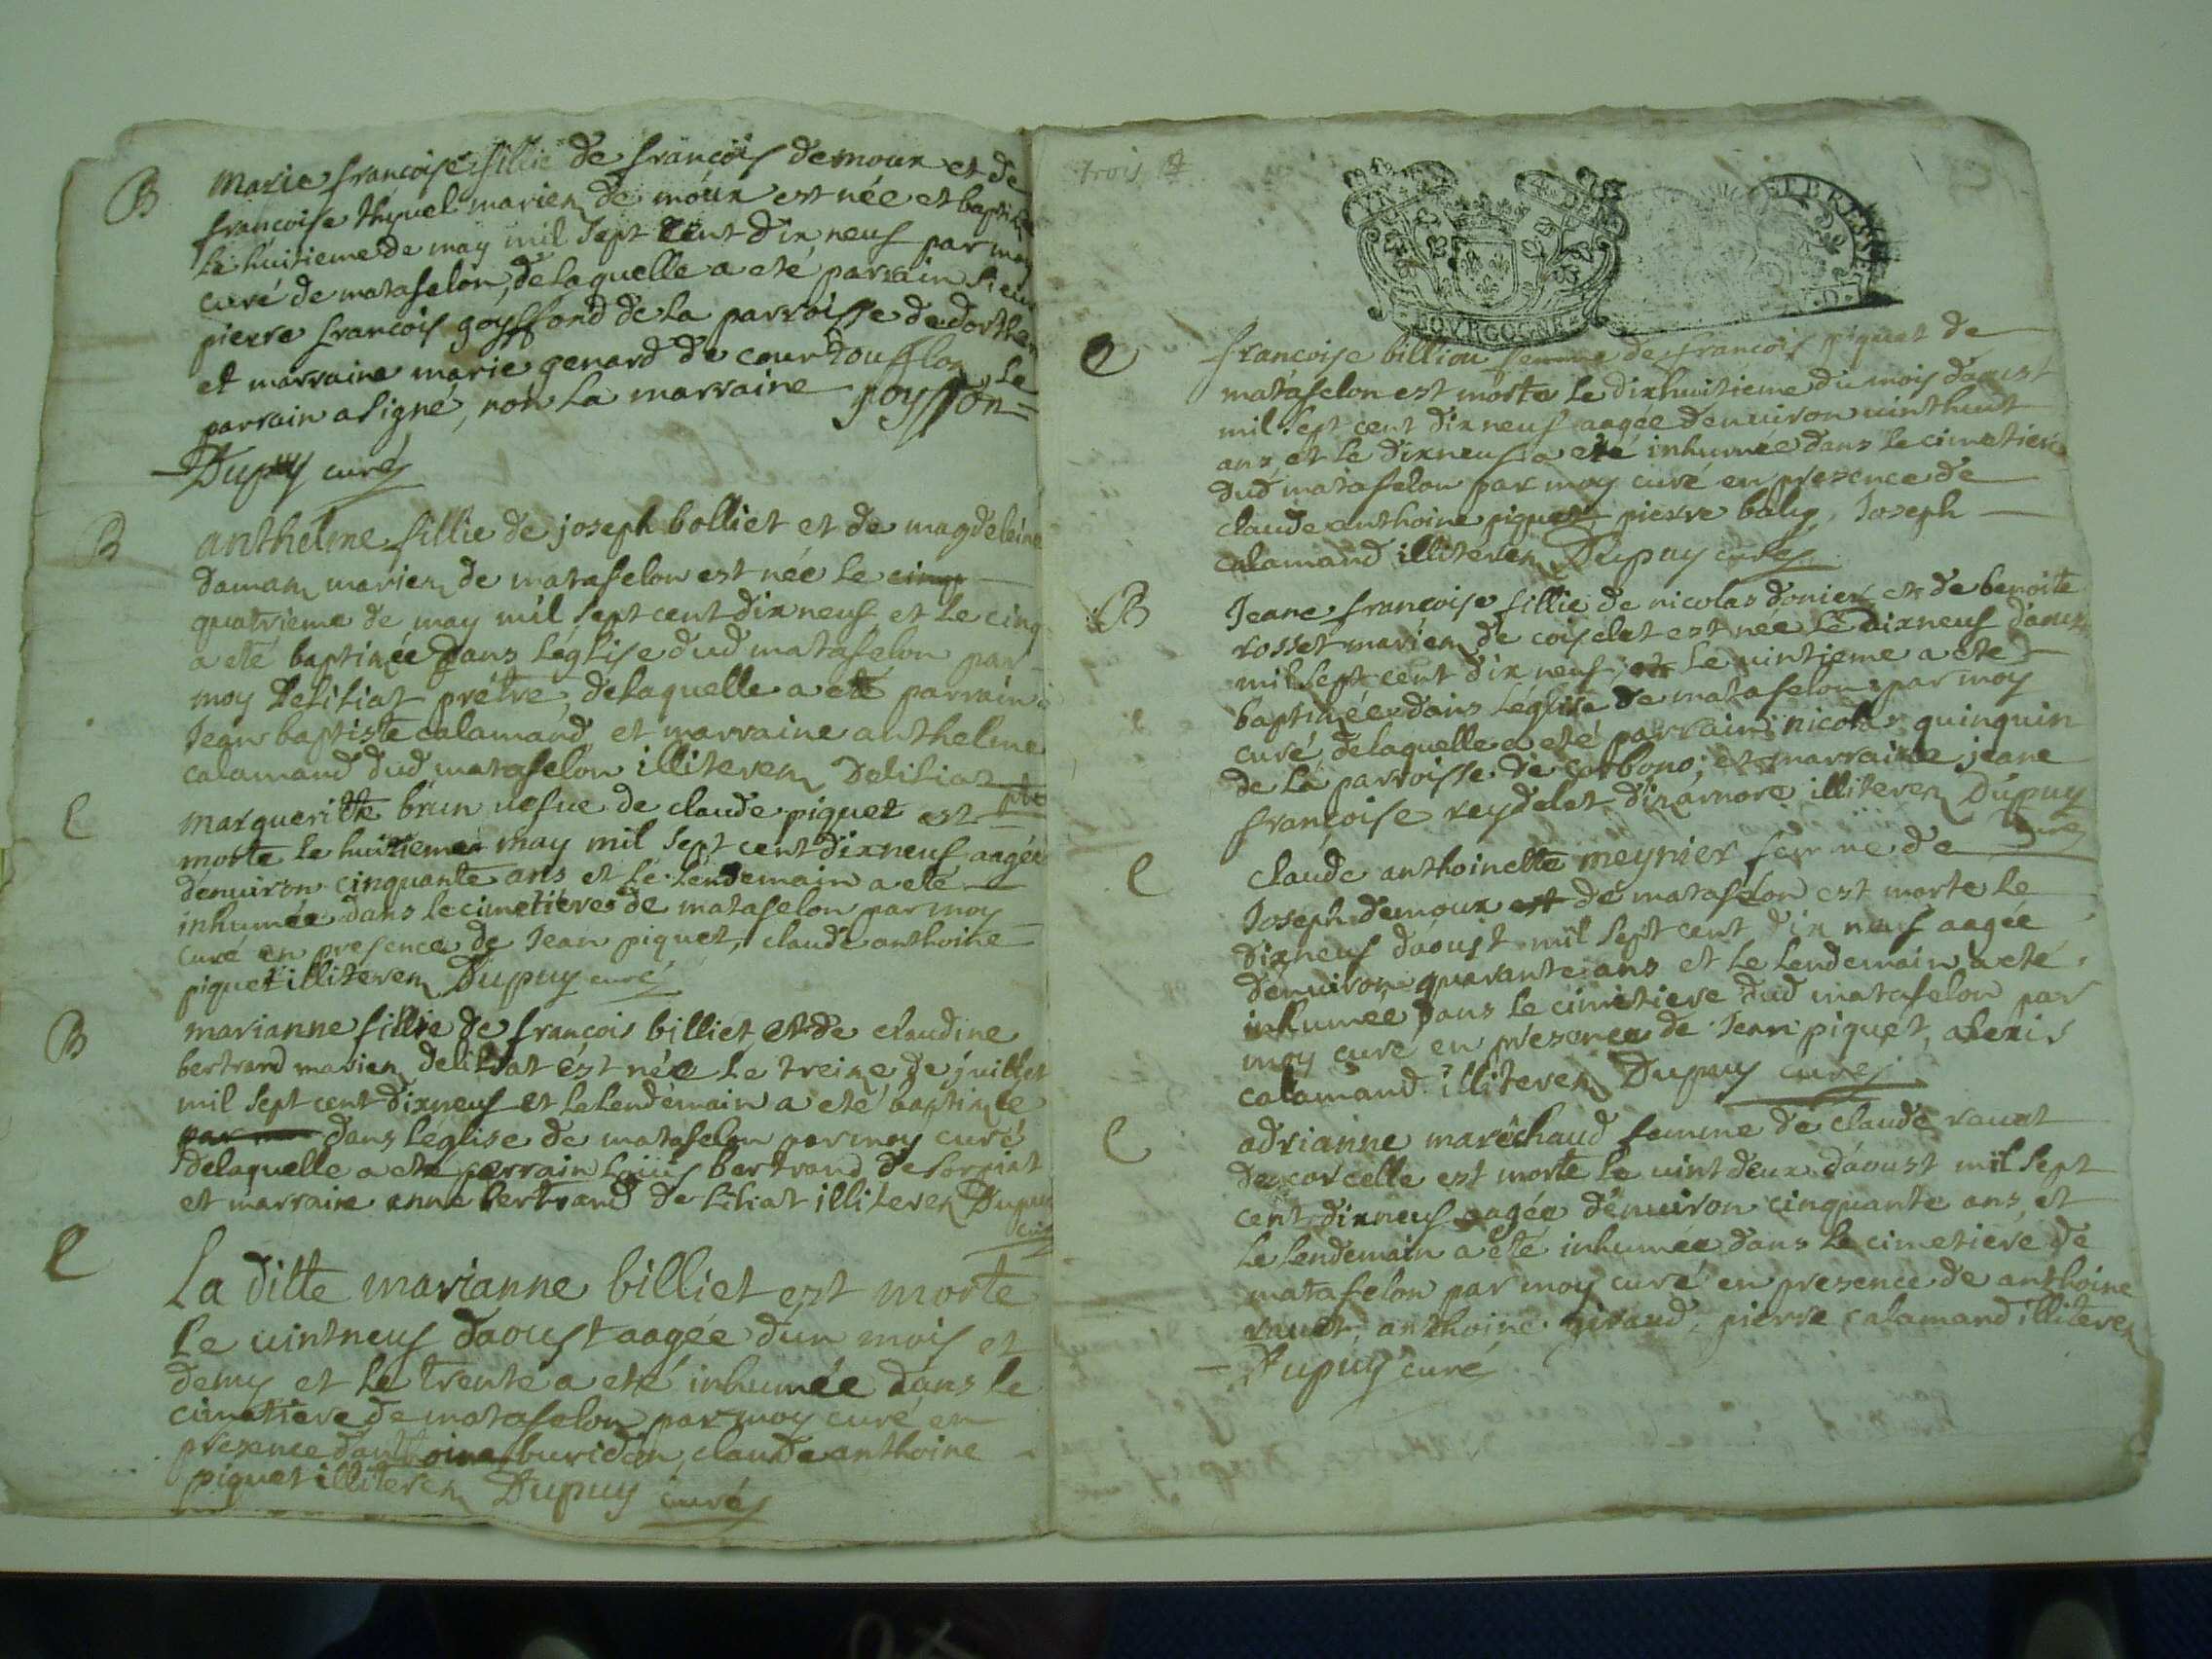 B
marie francoise fillie de françois demoux et de
francoise thevuel mariez de moux est née et baptizée
le huitieme de may mil sept cent dix neuf par moy
curé de matafelon, delaquelle a eté parrain sieur
pierre françois goyffond de la parroisse de dorthan
et marraine marie genard de courtoufflon, le
parrain a signé, non la marraine goyffon
Dupuy curé
B
anthelme fillie de joseph bolliet et de magdeleine
daman mariez de matafelon est née le cinq
quatrieme de may mil sept cent dix neuf et le cinq
a eté baptizée dans léglise dud matafelon par
moy deliliat prêtre, delaquelle a eté parrain
Jean baptiste calamand et marraine anthelme
calamand dud matafelon illiterez Deliliat ptre
e
margueritte brun vefue de claude piquet est
morte le huitieme may mil sept cent dixneuf aagée
denuiron cinquante ans et le lendemain a eté
inhumée dans le cimetiere de matafelon par moy
curé en presence de Jean piquet, claude anthoine
piquet illiterez Dupuy curé
B
marianne fillie de françois billiet et de claudine
bertrand mariez delilliat est née le treize de juillet
mil sept cent dixneuf et le lendemain a eté baptizée
par moy dans léglise de matafelon par moy curé
delaquelle a eté parrain louis bertrand de sorpiat
et marraine anne bertrand de liliat illiterez Dupuy
curé
e
la ditte marianne billiet est morte
le uintneuf daoust aagée dun mois et
demy et le trente a eté inhumée dans le
cimetiere de matafelon par moy curé en
presence danthoine buridon, claude anthoine
piquet illiterez Dupuy curé
trois
BOVRGOGNE
ET BRESSE
e
francoise billiou femme de françois piquet de
matafelon est morte le dixhuitieme du mois daoust
mil sept cent dix neuf aagée denuiron uinthuit
ans, et le dixneuf a eté inhumée dans le cimetiere
dud matafelon par moy curé en presence de
claude anthoine piquet, pierre baly, Joseph
calamand illiterez Dupuy curé
B
Jeane françoise fillie de nicolas donier et de benoite
rosset mariez de coiselet est née le dixneuf daoust
mil sept cent dix neuf, et le uintieme a eté
baptizée dans léglise de matafelon par moy
curé, delaquelle a eté parrain nicolas guinguin
de la parroisse de corbono, et marraine jeane
françoise reydelet dizarnore illiterez Dupuy
curé
e
claude anthoinette meynier femme de
Joseph demoux est de matafelon est morte le
dixneuf daoust mil sept cent dix neuf aagée
denuiron quarante ans et le lendemain a eté
inhumée dans le cimetiere dud matafelon par
moy curé en presence de Jean piquet, alexis
calamand illiterez Dupuy curé
e
adrianne maréchaud femme de claude rauat
de corcelle est morte le uint deux daoust mil sept
cent dixneuf aagée denuiron cinquante ans, et
le lendemain a eté inhumée dans le cimetiere de
matafelon par moy curé en presence de anthoine
rauat, anthoine giraud, pierre calamand illiterez
Dupuy curé